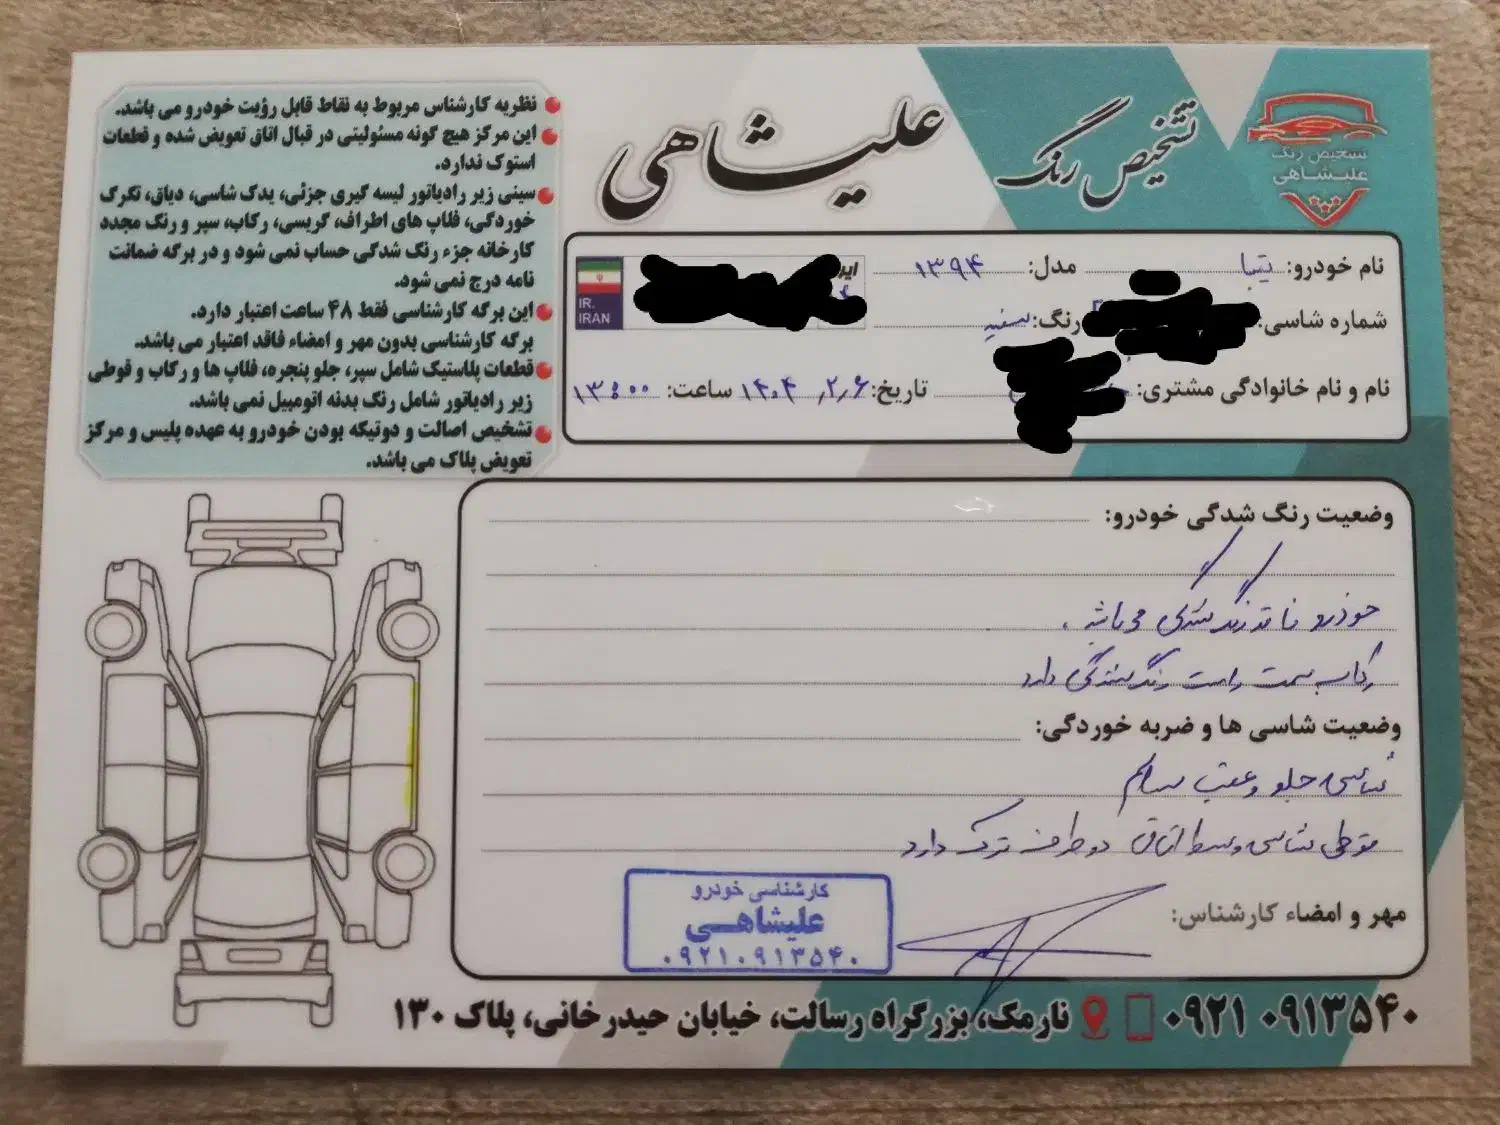 تشخیص رنگ
علیشاهی
تشخیص رنگ
علیشاهی
نظریه کارشناس مربوط به نقاط قابل رؤیت خودرو می باشد.
این مرکز هیچ گونه مسئولیتی در قبال اتاق تعویض شده و قطعات
استوک ندارد.
سینی زیر رادیاتور لیسه گیری جزئی، یدک شاسی، دیاق، تگرگ
خوردگی، فلاپ های اطراف، گریسی، رکاب، سپر و رنگ مجدد
کارخانه جزء رنگ شدگی حساب نمی شود و در برگه ضمانت
نامه درج نمی شود.
این برگه کارشناسی فقط ۴۸ ساعت اعتبار دارد.
برگه کارشناسی بدون مهر و امضاء فاقد اعتبار می باشد.
قطعات پلاستیک شامل سپر، جلو پنجره، فلاپ ها و رکاب و قوطی
زیر رادیاتور شامل رنگ بدنه اتومبیل نمی باشد.
تشخیص اصالت و دوتیکه بودن خودرو به عهده پلیس و مرکز
تعویض پلاک می باشد.
نام خودرو: تیبا مدل: ۱۳۹۴
I.R.
IRAN
شماره شاسی: رنگ: سفید
نام و نام خانوادگی مشتری: تاریخ: ۱۴۰۴٫۲٫۶ ساعت: ۱۳:۰۰
وضعیت رنگ شدگی خودرو:
خودرو فاقد رنگ شدگی می باشد.
رکاب سمت راست رنگ شدگی دارد
وضعیت شاسی ها و ضربه خوردگی:
شاسی جلو و عقب سالم
قوطی شاسی وسط اتاق دو طرف ترک دارد
مهر و امضاء کارشناس:
کارشناسی خودرو
علیشاهی
۰۹۲۱۰۹۱۳۵۴۰
۰۹۲۱ ۰۹۱۳۵۴۰ نارمک، بزرگراه رسالت، خیابان حیدرخانی، پلاک ۱۳۰